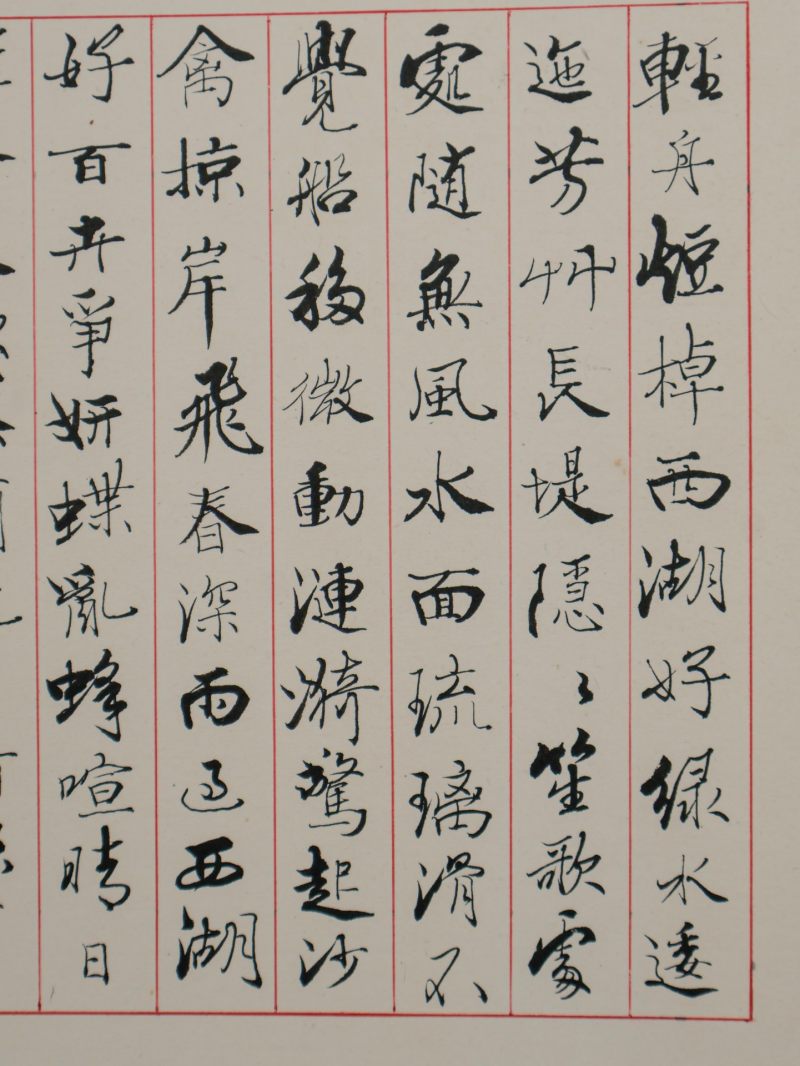 輕舟短棹西湖好綠水逶
迤芳艸長堤隱〻笙歌處
處随無風水面琉璃滑不
覺船移微動漣漪驚起沙
禽掠岸飛春深雨過西湖
好百卉爭妍蝶亂蜂喧晴日